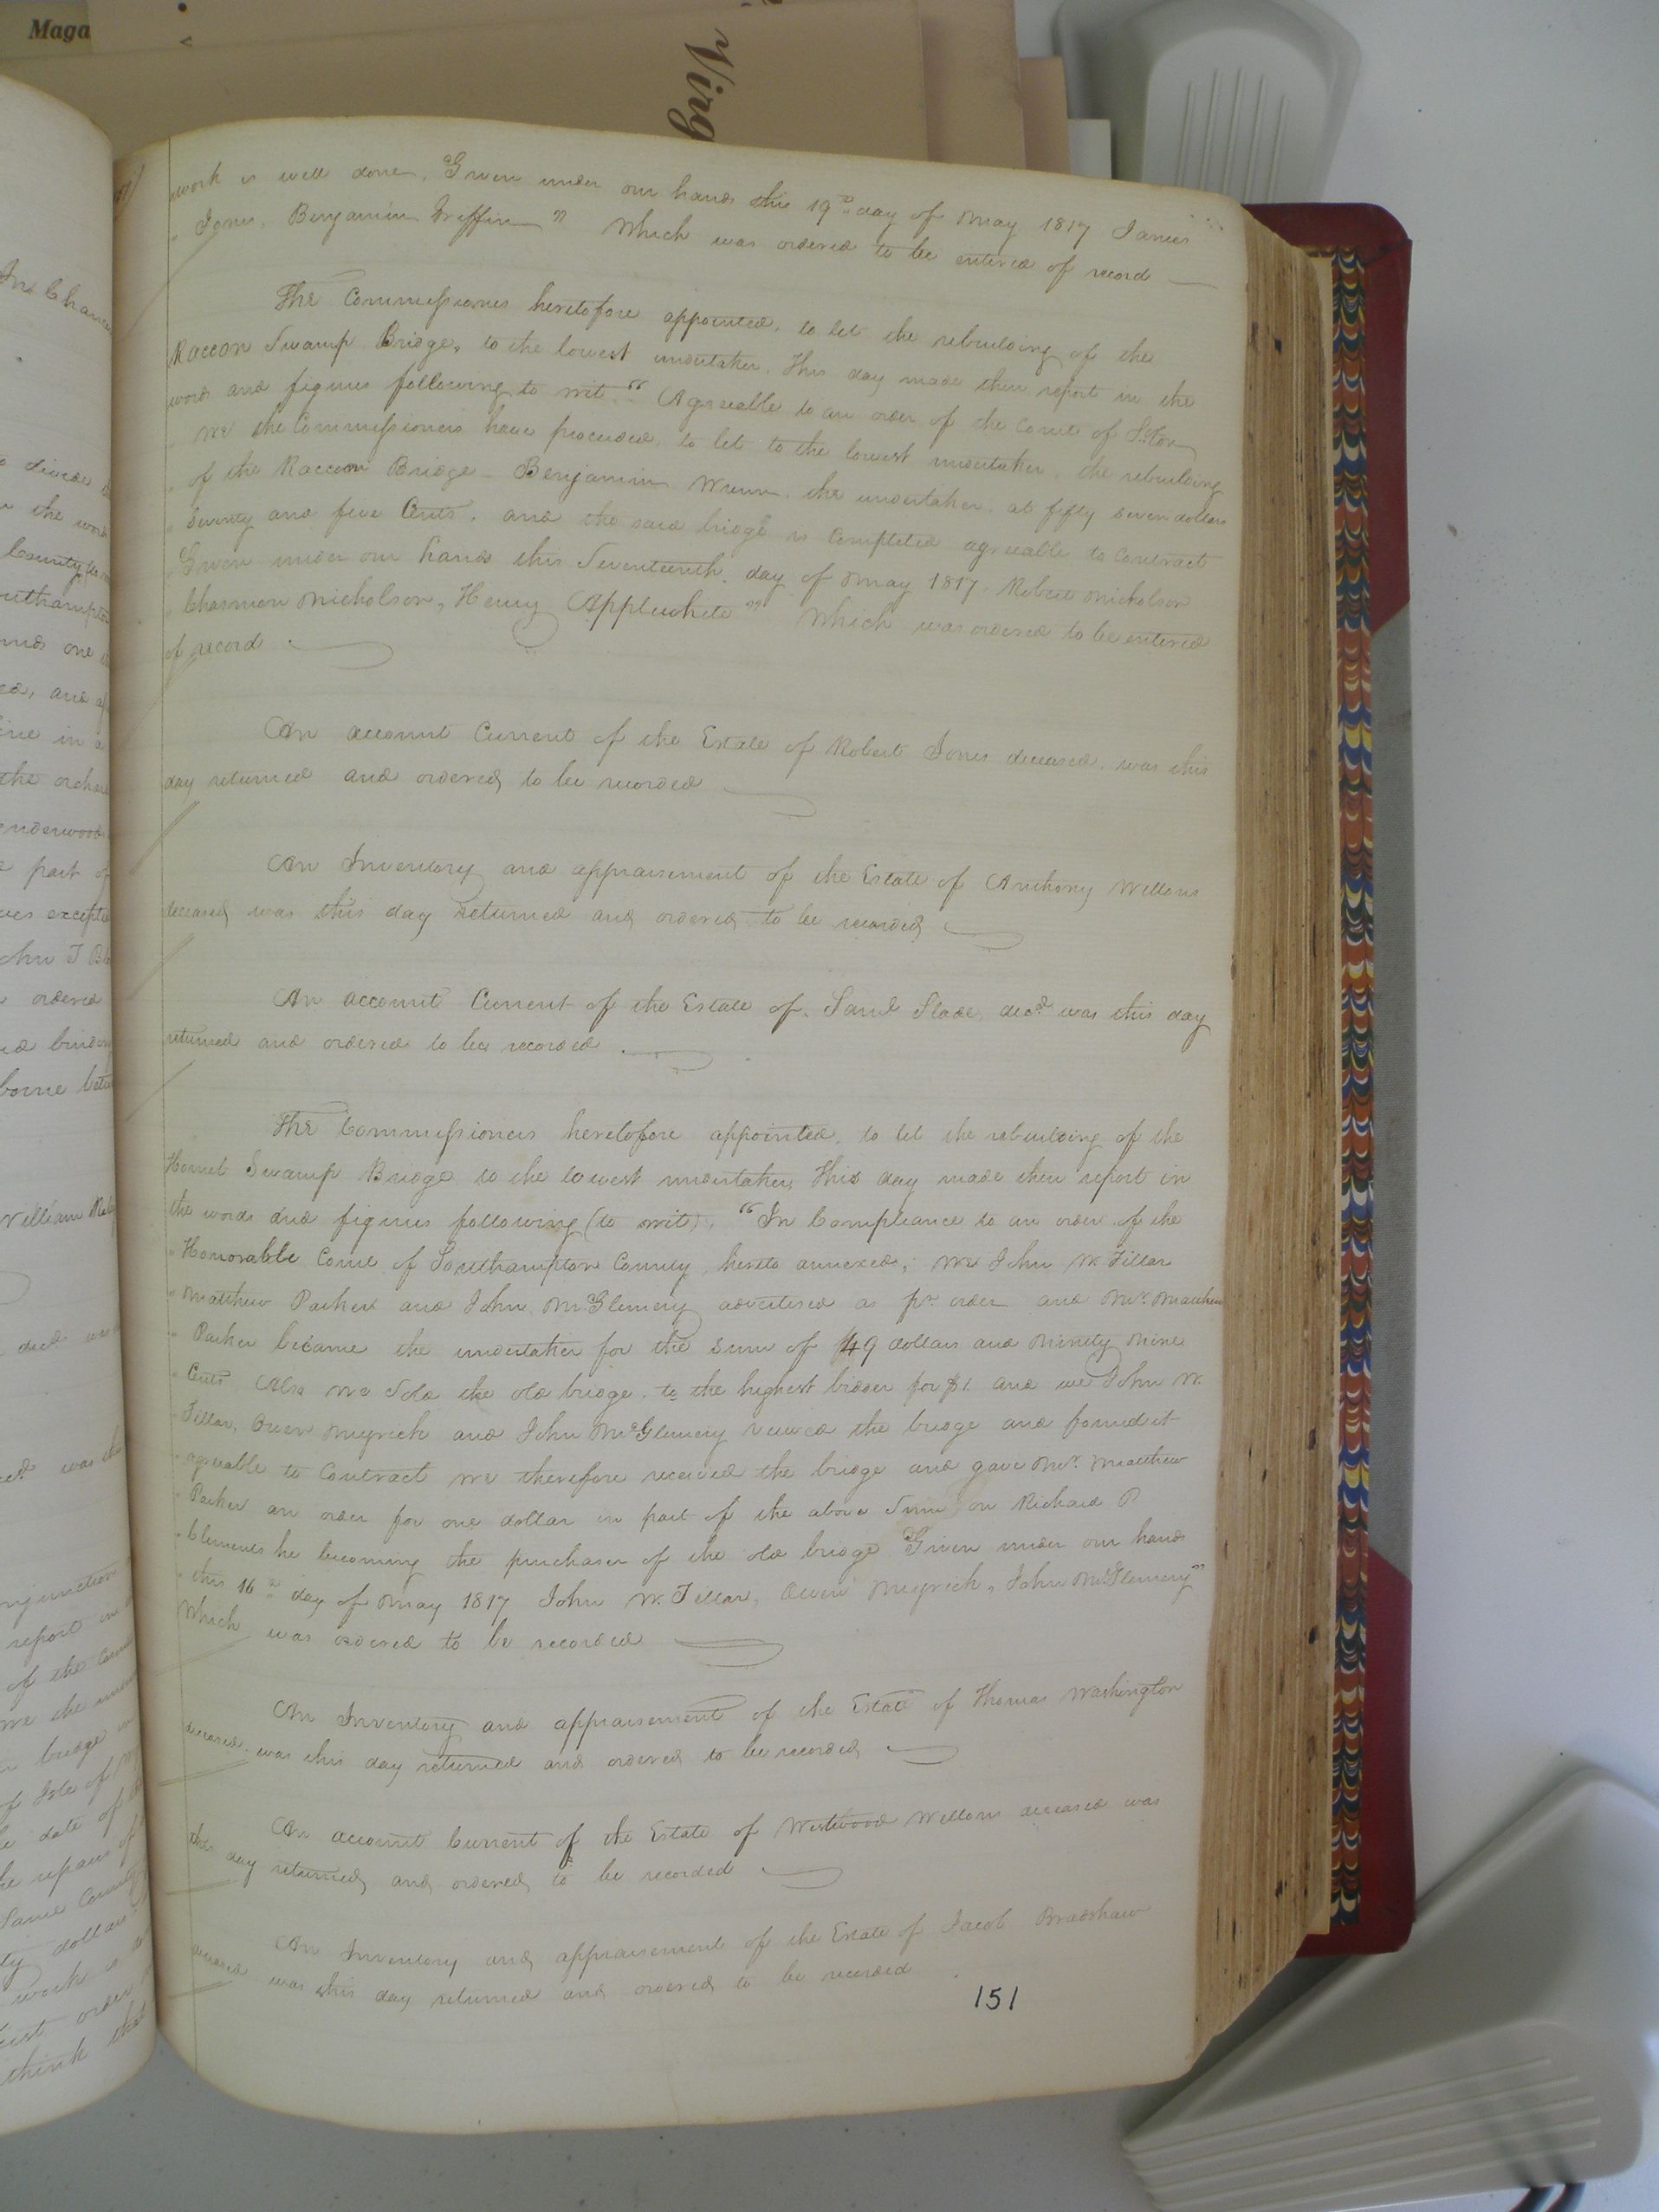 Maga
Virg
work is well done, Given under our hands this 19th day of May 1817 James
" Jones, Benjamin Griffin " Which was ordered to be entered of record
The Commissioners heretofore appointed, to let the rebuilding of the
Raccon Swamp Bridge, to the lowest undertaker, This day made their report in the
words and figures following, to wit " Agreeable to an order of the Court of S.ton
" We the Commissioners have proceeded, to let to the lowest undertaker, the rebuilding
" of the Raccoon Bridge - Benjamin Wrenn, the undertaker, at fifty seven dollars
" Seventy and five Cents, and the said bridge is Completed agreeable to Contract
" Given under our hands this Seventeenth day of May 1817. Robert Nicholson
" Charmon Nicholson, Henry Applewhite " Which was ordered to be entered
of record
An account Current of the Estate of Robert Jones deceased, was this
day returned and ordered to be recorded
An Inventory and appraisement of the Estate of Anthony Wellons
deceased was this day returned and ordered to be recorded
An account Current of the Estate of Saml Slade, decd was this day
returned and ordered to be recorded
The Commissioners heretofore appointed, to let the rebuilding of the
Hornet Swamp Bridge to the lowest undertaker, This day made their report in
the words and figures following (to wit), "In Compliance to an order of the
" Honorable Court of Southampton County, hereto annexed, We John W. Tillar
" Matthew Parker and John McGlemery advertised as pr order and Mr. Matthew
" Parker became the undertaker for the Sum of $49 dollars and Ninety Nine
" Cents Also We Sold the old bridge, to the highest bidder for $1. and we John W.
" Tillar, Owen Myrick and John McGlemery viewed the bridge and found it
" agreeable to Contract We therefore received the bridge and gave Mr. Matthew
" Parker an order for one dollar in part of the above Sum on Richard P
" Clements he becoming the purchaser of the old bridge Given under our hands
" this 16th day of May 1817 John W. Tillar, Owen Myrick, John McGlemery "
Which was ordered to be recorded
An Inventory and appraisement of the Estate of Thomas Washington
deceased, was this day returned and ordered to be recorded
An account Current of the Estate of Westwood Wellons deceased was
this day returned, and ordered, to be recorded
An Inventory and appraisement of the Estate of Jacob Bradshaw
deceased was this day returned and ordered to be recorded
151